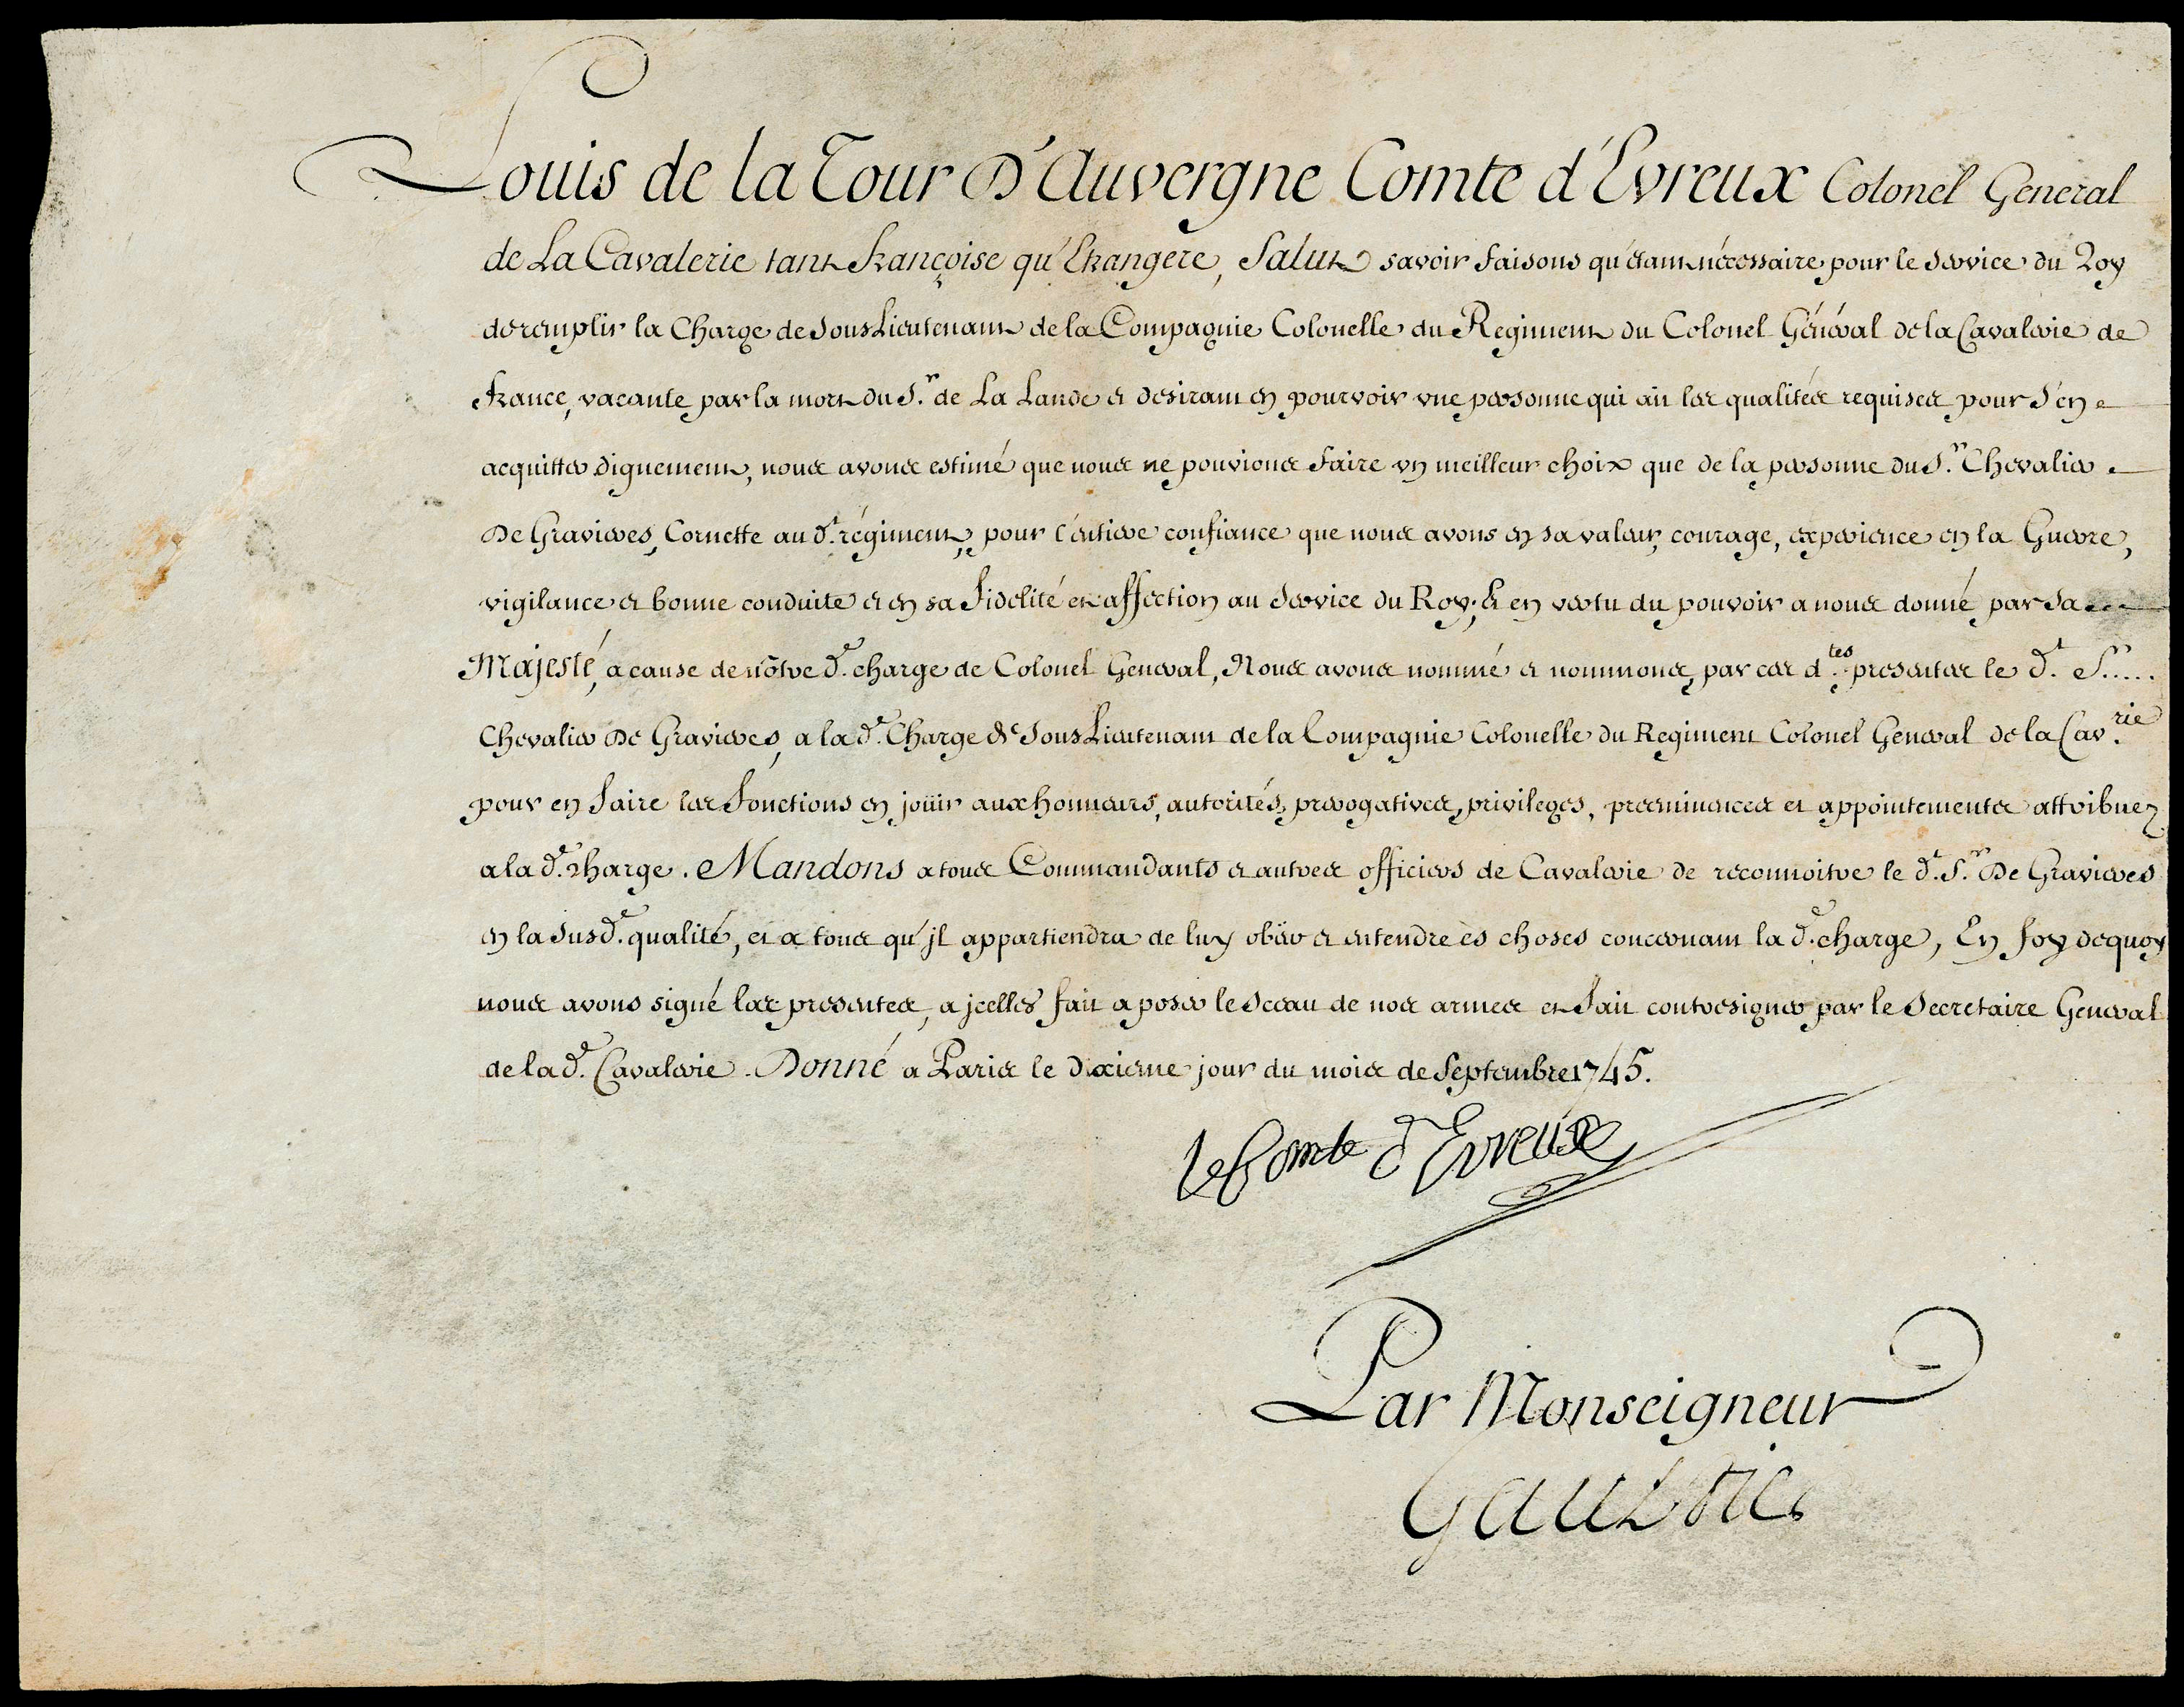 Louis de la Tour D'Auvergne Comte d'Evreux Colonel General
de La Cavalerie tant françoise qu'Etrangere, Salut savoir faisons qu'étant nécessaire pour le service du Roy
de remplir la Charge de Sous Lieutenant de la Compagnie Colonelle du Regiment du Colonel Général de la Cavalerie de
france, vacante par la mort du S.r de La Lande et desirant en pourvoir une personne qui ait les qualités requises pour s'en
acquitter dignement, nous avons estimé que nous ne pouvions faire un meilleur choix que de la personne du S.r Chevalier
De Gravieres, Cornette au d.t régiment, pour l'entiere confiance que nous avons en sa valeur, courage, experience en la Guerre,
vigilance et bonne conduite et en sa fidelité et affection au service du Roy; Et en vertu du pouvoir a nous donné par sa
Majesté, a cause de nôtre d.e charge de Colonel General, Nous avons nommé et nommons, par ces d.tes presentes le d.t S.r....
Chevalier De Gravieres, a la d.e Charge de Sous Lieutenant de la Compagnie Colonelle du Regiment Colonel General de la Cav.rie
pour en faire les fonctions en joüir aux honneurs, autorités, prerogatives, privileges, preeminences et appointements attribuez
a la d.e charge. Mandons a tous Commandants et autres officiers de Cavalerie de reconnoitre le d.t S.r De Gravieres
en la susd.e qualité, et a tous qu'jl appartiendra de luy obéir et entendre ès choses concernant la d.e charge, En foy dequoy
nous avons signé les presentes, a jcelles fait aposer le Sceau de nos armes et fait contresigner par le Secretaire General
de la d.e Cavalerie. Donné a Paris le dixieme jour du mois de Septembre 1745.
le Comte d'Evreux
Par Monseigneur